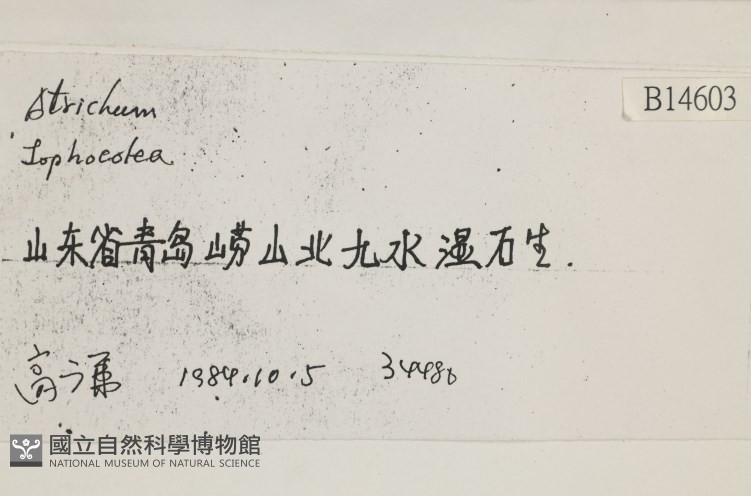 Atrichum
B14603
Lophocolea
山东省青岛崂山北九水湿石生.
高谦 1984.10.5 34486
國立自然科學博物館
NATIONAL MUSEUM OF NATURAL SCIENCE